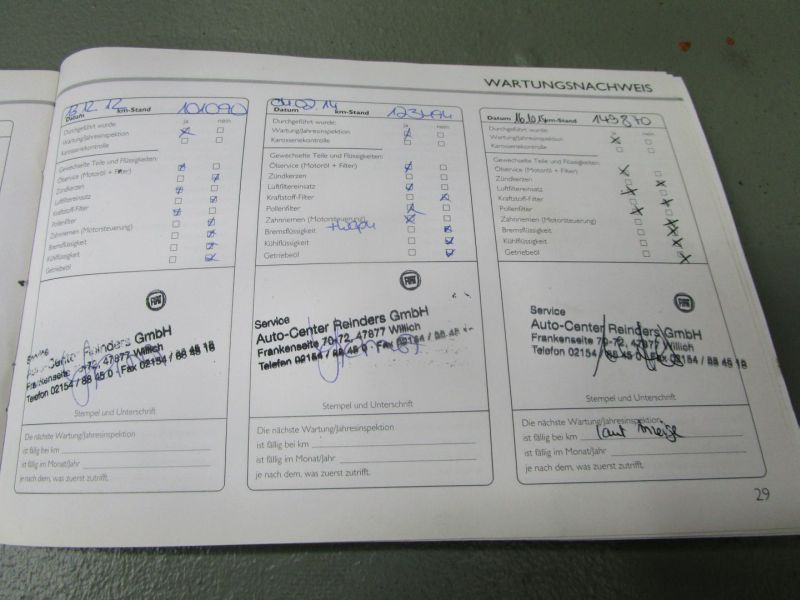 WARTUNGSNACHWEIS
13.12.12 101090
Datum km-Stand
Durchgeführt wurde: ja nein
Wartung/Jahresinspektion
Karosseriekontrolle
Gewechselte Teile und Flüssigkeiten:
Ölservice (Motoröl + Filter)
Zündkerzen
Luftfiltereinsatz
Kraftstoff-Filter
Pollenfilter
Zahnriemen (Motorsteuerung)
Bremsflüssigkeit
Kühlflüssigkeit
Getriebeöl
FIAT
Service
Auto-Center Reinders GmbH
Frankenseite 70-72, 47877 Willich
Telefon 02154 / 88 45 0 Fax 02154 / 88 45 18
Stempel und Unterschrift
Die nächste Wartung/Jahresinspektion
ist fällig bei km
ist fällig im Monat/Jahr
je nach dem, was zuerst zutrifft.
04.02.14
Datum km-Stand
Durchgeführt wurde: ja nein
Wartung/Jahresinspektion
Karosseriekontrolle
Gewechselte Teile und Flüssigkeiten:
Ölservice (Motoröl + Filter)
Zündkerzen
Luftfiltereinsatz
Kraftstoff-Filter
Pollenfilter
Zahnriemen (Motorsteuerung)
Bremsflüssigkeit +Wapu
Kühlflüssigkeit
Getriebeöl
FIAT
Service
Auto-Center Reinders GmbH
Frankenseite 70-72, 47877 Willich
Telefon 02154 / 88 45 0 Fax 02154 / 88 45
Stempel und Unterschrift
Die nächste Wartung/Jahresinspektion
ist fällig bei km
ist fällig im Monat/Jahr
je nach dem, was zuerst zutrifft.
Datum 16.10.15 km-Stand 149870
Durchgeführt wurde: ja nein
Wartung/Jahresinspektion
Karosseriekontrolle
Gewechselte Teile und Flüssigkeiten:
Ölservice (Motoröl + Filter)
Zündkerzen
Luftfiltereinsatz
Kraftstoff-Filter
Pollenfilter
Zahnriemen (Motorsteuerung)
Bremsflüssigkeit
Kühlflüssigkeit
Getriebeöl
FIAT
Service
Auto-Center Reinders GmbH
Frankenseite 70-72, 47877 Willich
Telefon 02154 / 88 45 0 Fax 02154 / 88 45 18
Stempel und Unterschrift
Die nächste Wartung/Jahresinspektion
ist fällig bei km laut Anzeige
ist fällig im Monat/Jahr
je nach dem, was zuerst zutrifft.
29